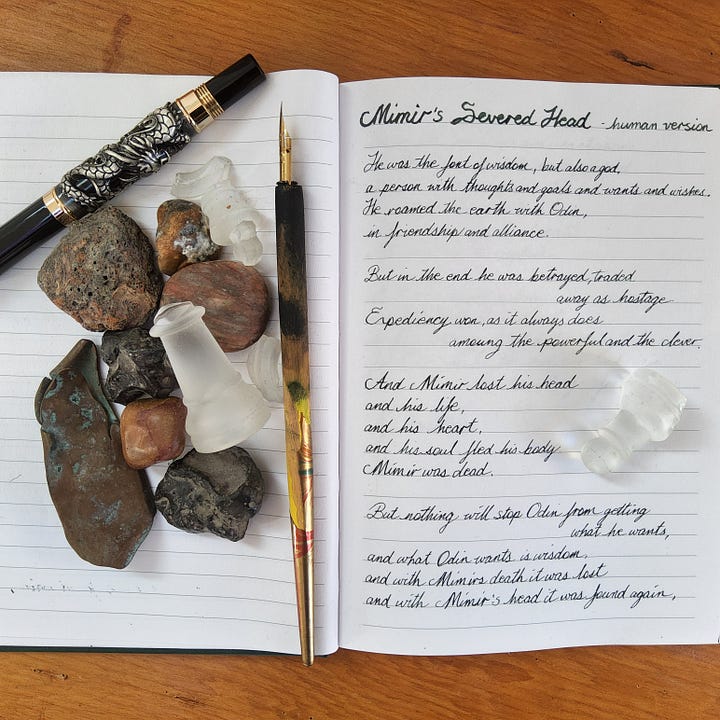 Mimir's Severed Head - human version
He was the font of wisdom, but also a god,
a person with thoughts and goals and wants and wishes.
He roamed the earth with Odin,
in friendship and alliance.
But in the end he was betrayed, traded
away as hostage
Expediency won, as it always does
amoung the powerful and the clever.
And Mimir lost his head
and his life,
and his heart,
and his soul fled his body
Mimir was dead.
But nothing will stop Odin from getting
what he wants,
and what Odin wants is wisdom,
and with Mimirs death it was lost
and with Mimir's head it was found again,